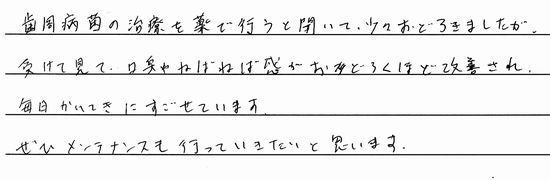 歯周病菌の治療を薬で行うと聞いて、少々おどろきましたが、
受けて見て、口臭やねばねば感がおどろくほど改善され、
毎日かいてきにすごせています。
ぜひメンテナンスも行っていきたいと思います。